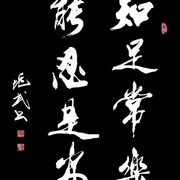 知足常樂
能忍是安
武书